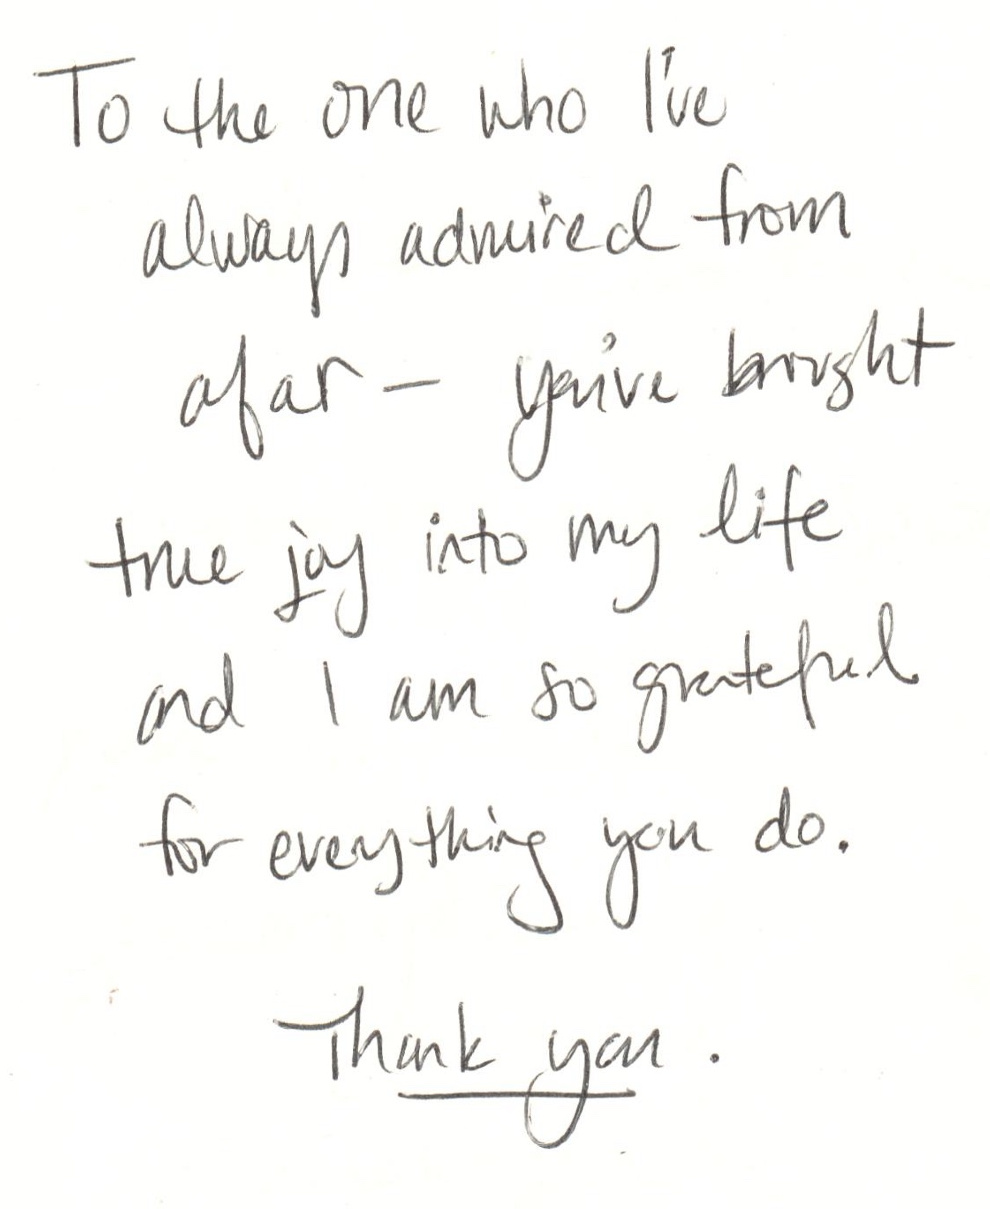 To the one who I've
always admired from
afar – you've brought
true joy into my life
and I am so grateful
for everything you do.
Thank you.